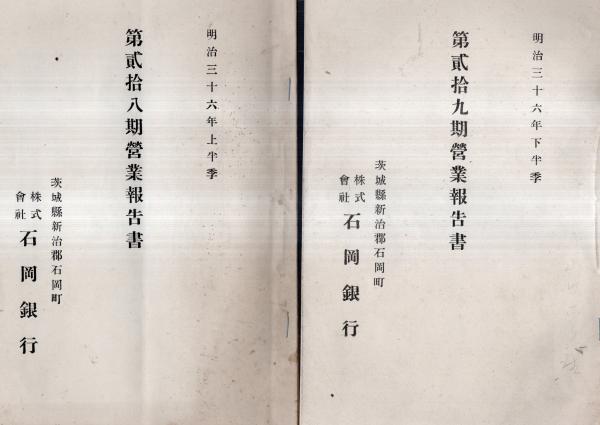 明治三十六年下半季
第貳拾九期營業報告書
茨城縣新治郡石岡町
株式會社 石岡銀行
明治三十六年上半季
第貳拾八期營業報告書
茨城縣新治郡石岡町
株式會社 石岡銀行